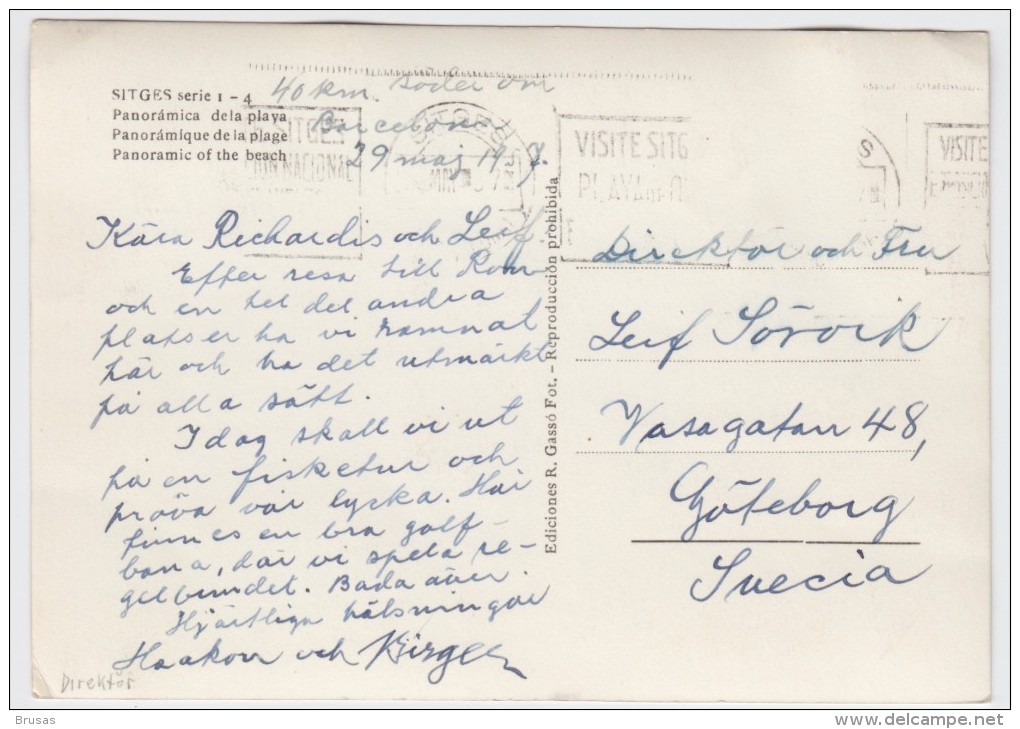 SITGES serie 1 - 4
Panorámica de la playa
Panorámique de la plage
Panoramic of the beach
40 km. söder om
Barcelona
29 maj 19
VISITE SITG
PLAYA DE O
VISITE
SITGES
NACIONAL
Kära Richardis och Leif
Efter resa till Rom
och en hel del andra
platser ha vi hamnat
här och ha det utmärkt
på alla sätt.
Idag skall vi ut
på en fisketur och
pröva vår lycka. Här
finnes en bra golf-
bana, där vi spela re-
gelbundet. Bada även.
Hjärtliga hälsningar
Haakon och Birger
Ediciones R. Gassó Fot. - Reproducción prohibida
Direktör och Fru
Leif Sörvik
Vasagatan 48,
Göteborg
Suecia
Direktör
Brusas
www.delcampe.net